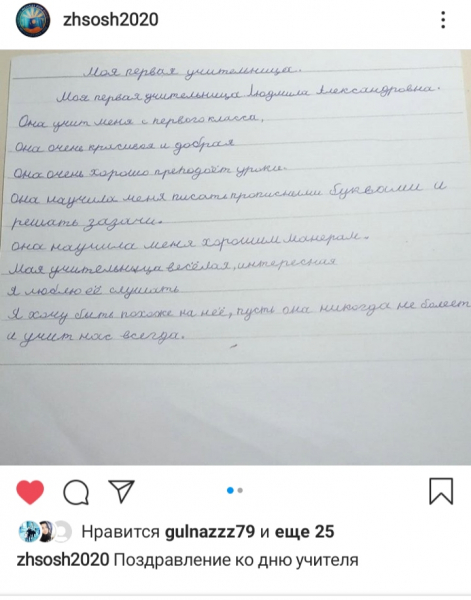 zhsosh2020
Моя первая учительница.
Моя первая учительница Людмила Александровна.
Она учит меня с первого класса.
Она очень красивая и добрая
Она очень хорошо преподоёт уроки.
Она научила меня писать прописными буквами и
решать задачи.
Она научила меня хорошим манерам.
Мая учительница весёлая, интересная
Я люблю её слушать
Я хочу быть похоже на неё, пусть она никогда не болеет
и учит нас всегда.
Нравится gulnazzz79 и еще 25
zhsosh2020 Поздравление ко дню учителя